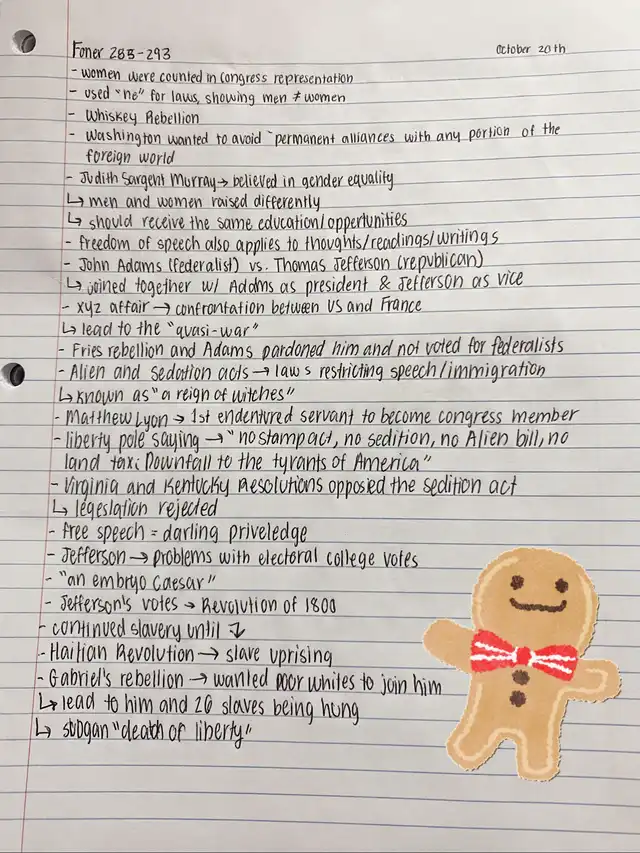 Foner 285-293
October 20th
- women were counted in congress representation
- used "he" for laws, showing men ≠ women
- Whiskey Rebellion
- Washington wanted to avoid "permanent alliances with any portion of the
foreign world
- Judith Sargent Murray → believed in gender equality
↳ men and women raised differently
↳ should receive the same education/oppertunities
- freedom of speech also applies to thoughts/readings/writings
- John Adams (federalist) vs. Thomas Jefferson (republican)
↳ joined together w/ Adams as president & Jefferson as vice
- xyz affair → confrontation between US and France
↳ lead to the "quasi-war"
- Fries rebellion and Adams pardoned him and not voted for federalists
- Alien and sedation acts → laws restricting speech/immigration
↳ known as "a reign of witches"
- Matthew Lyon → 1st endentured servant to become congress member
- liberty pole saying → "no stamp act, no sedition, no Alien bill, no
land tax: Downfall to the tyrants of America"
- Virginia and Kentucky Resolutions opposed the sedition act
↳ legeslation rejected
- free speech = darling priveledge
- Jefferson → problems with electoral college votes
- "an embryo Caesar"
- Jefferson's votes → Revolution of 1800
- continued slavery until ↴
- Haitian Revolution → slave uprising
- Gabriel's rebellion → wanted poor whites to join him
↳ lead to him and 26 slaves being hung
↳ slogan "death of liberty"